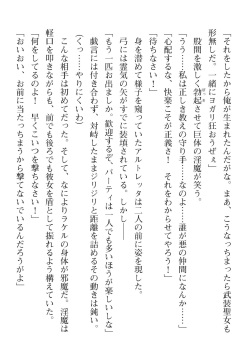 それをしたから俺が生まれたんだがな、まあ、こうなっちまったら武装聖女も
形無しだ。一緒にヨガリ狂おうぜぇ」
　股間を激しく勃起させて巨体の淫魔が笑う。
「うう……私は正しき教えの守り手……なのよ……誰が悪の仲間になんか……」
「心配するな、快楽こそが正義さ！　それをわからせてやろう！」
「待ちなさい！」
　身を潜めて様子を窺っていたアルトレッタは二人の前に姿を現した。
　弓には霊気の矢がすでに装填されている。しかし――
「もう一匹お出ましか、歓迎するぞ。パーティは一人でも多いほうが楽しいしな」
　戯言には付き合わず、対峙したままジリジリと距離を詰めるその動きは鈍い。
（くっ……やりにくいわ）
　こんな相手は初めてだった。そして、なによりラケルの身体が邪魔だ。淫魔は
軽口を叩きながらも、前でも後ろでも彼女を盾として振れるよう構えていた。
「何をしてるのよ！　早くこいつを撃ちなさい！」
「おいおい、お前に当たっちまうから撃てないでいるんだろうがよ」